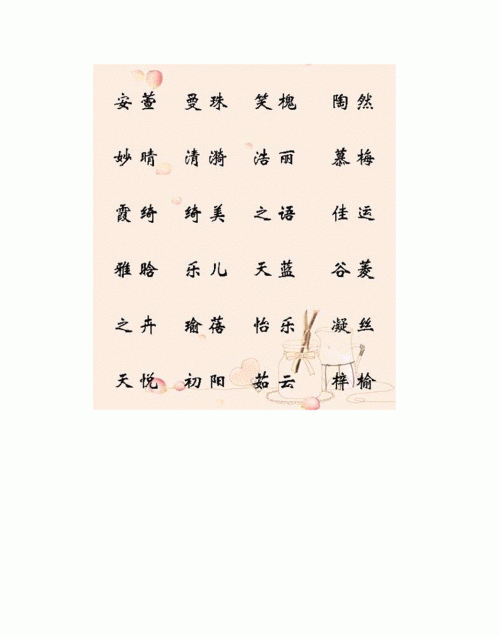 安萱 曼珠 笑槐 陶然
妙晴 清漪 浩丽 慕梅
霞绮 绮美 之语 佳运
雅晗 乐儿 天蓝 谷菱
之卉 瑜蓓 怡乐 凝丝
天悦 初阳 茹云 梓榆